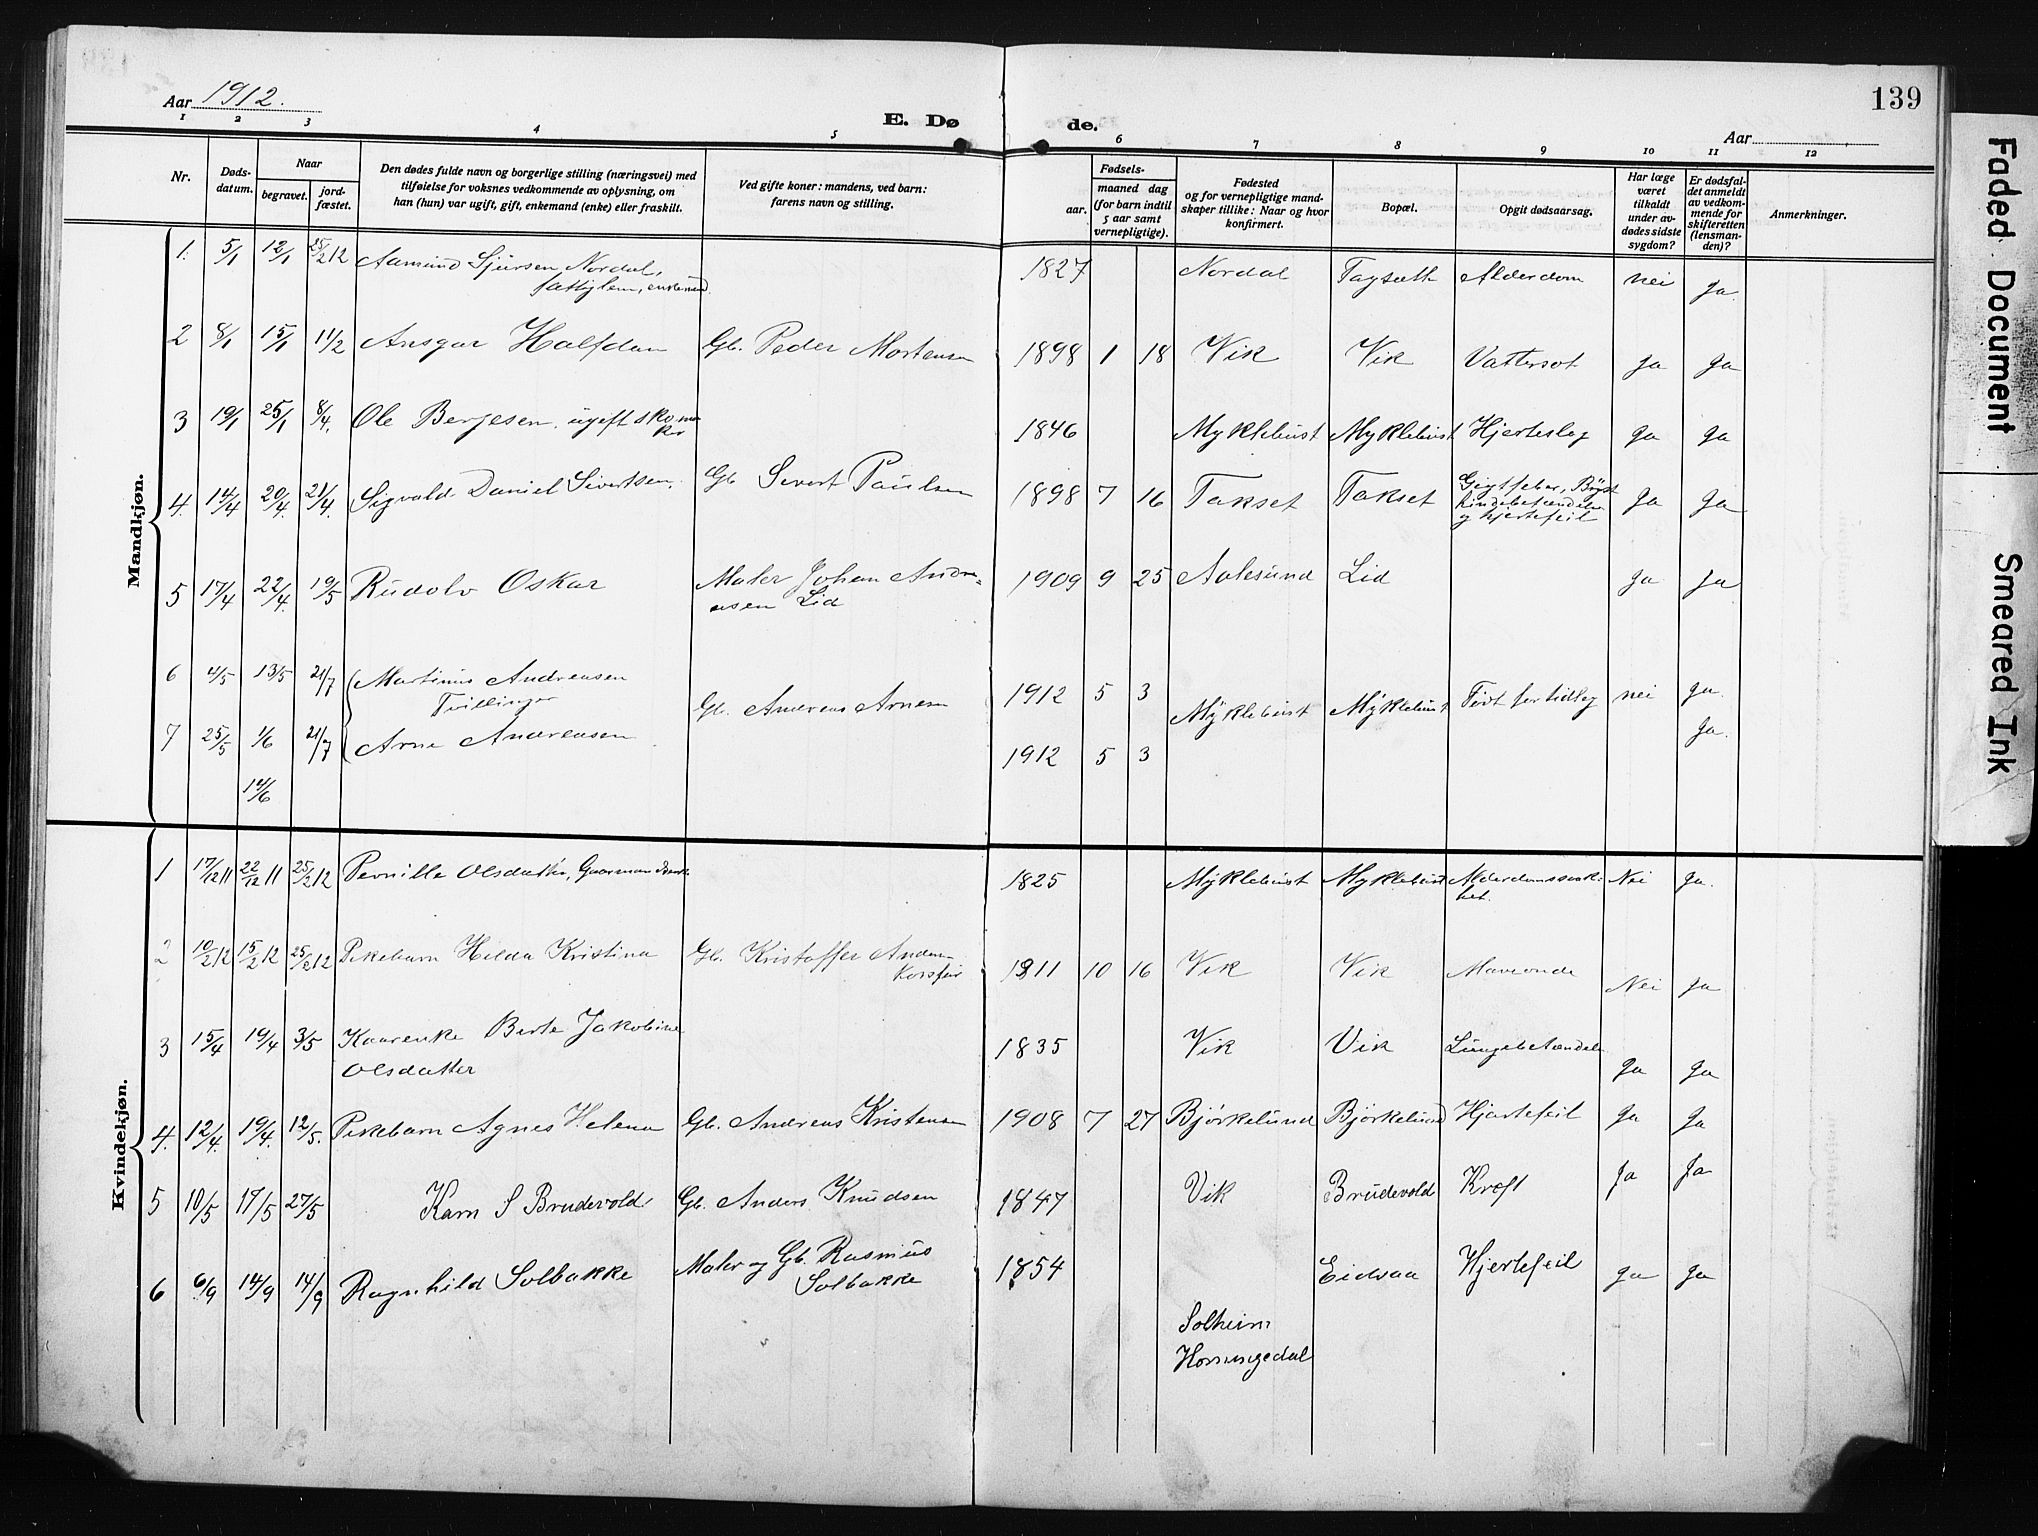 Aar 1912.
139
E. Dø de.
Aar
1 2 3 4 5 6 7 8 9 10 11 12
Nr.
Døds-
datum.
Naar
begravet.
jord-
fæstet.
Den dødes fulde navn og borgerlige stilling (næringsvei) med
tilføielse for voksnes vedkommende av oplysning, om
han (hun) var ugift, gift, enkemand (enke) eller fraskilt.
Ved gifte koner: mandens, ved barn:
farens navn og stilling.
Fødsels-
aar.
maaned dag
(for barn indtil
5 aar samt
vernepligtige).
Fødested
og for vernepligtige mand-
skaper tillike: Naar og hvor
konfirmert.
Bopæl.
Opgit dødsaarsag.
Har læge
været
tilkaldt
under av-
dødes sidste
sygdom?
Er dødsfal-
det anmeldt
av vedkom-
mende for
skifteretten
(lensman-
den)?
Anmerkninger.
Mandkjøn.
1. 5/1 12/1 25/2 12 Aamund Sjursen Nordal, 1827 Nordal Alderdom nei Ja.
enkemand.
2 8/1 15/1 11/2 Ansgar Halfdan Gb. Peder Mortensen 1898 1 18 Vik Vik Vattersot Ja Ja
3 19/1 25/1 8/4. Ole Berjesen. ugift skoma- 1846 Myklebust Myklebust Hjerteslag Ja Ja
ker
4. 14/4 20/4. 21/4. Sigvald Daniel Sivertsen. Gb Severt Paulsen 1898 7 16 Takset Takset Gigtfeber, Bryst
hindebetændelse
og hjertefeil Ja Ja
5 17/4 22/4. 19/5 Rudolv Oskar Maler Johan Andre-
asen Lid 1909 9 25 Aalesund Lid Ja Ja
6 4/5 13/5 21/7 Martinus Andreasen 1912 5 3 nei Ja.
Tvillinger Gb. Andreas Arnesen Myklebust Myklebust Født for tidlig
7 25/5 1/6 21/7 Arne Andreasen 1912 5 3 Ja.
14/6
Kvindekjøn.
1 17/12 11 22/12 11 25/2 12 Pernille Olsdatter, 1825 Myklebust Myklebust Alderdomssvak-
het. Nei Ja.
2 10/2 12 15/2 12 25/2 12 Pikebarn Hilda Kristina Gb. Kristoffer Anders- 1911 10 16 Vik Vik Maveonde Nei Ja
3 15/4 19/4 3/5 Kaarenke Berte Jakobine
Olsdatter 1835 Vik Vik Lungebetændelse Ja Ja
4. 12/4. 19/4. 12/5. Pikebarn Agnes Helena Gb. Andreas Kristensen 1908 7 27 Bjørkelund Bjørkelund Hjertefeil Ja Ja
5 10/5 17/5 27/5 Karn S Brudevold Gb. Anders Knudsen 1847 Vik Brudevold Kræft Ja Ja
6 6/9 14/9 14/9 Ragnhild Solbakke Maler og Gb. Rasmus
Solbakke 1854 Eidsaa Hjertefeil Ja Ja
Solheim
Faded Document
Smeared Ink